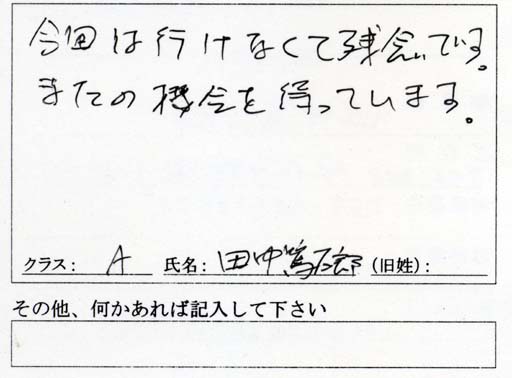 今回は行けなくて残念です。
またの機会を待っています。
クラス： A 氏名：田中篤郎 （旧姓）：
その他、何かあれば記入して下さい